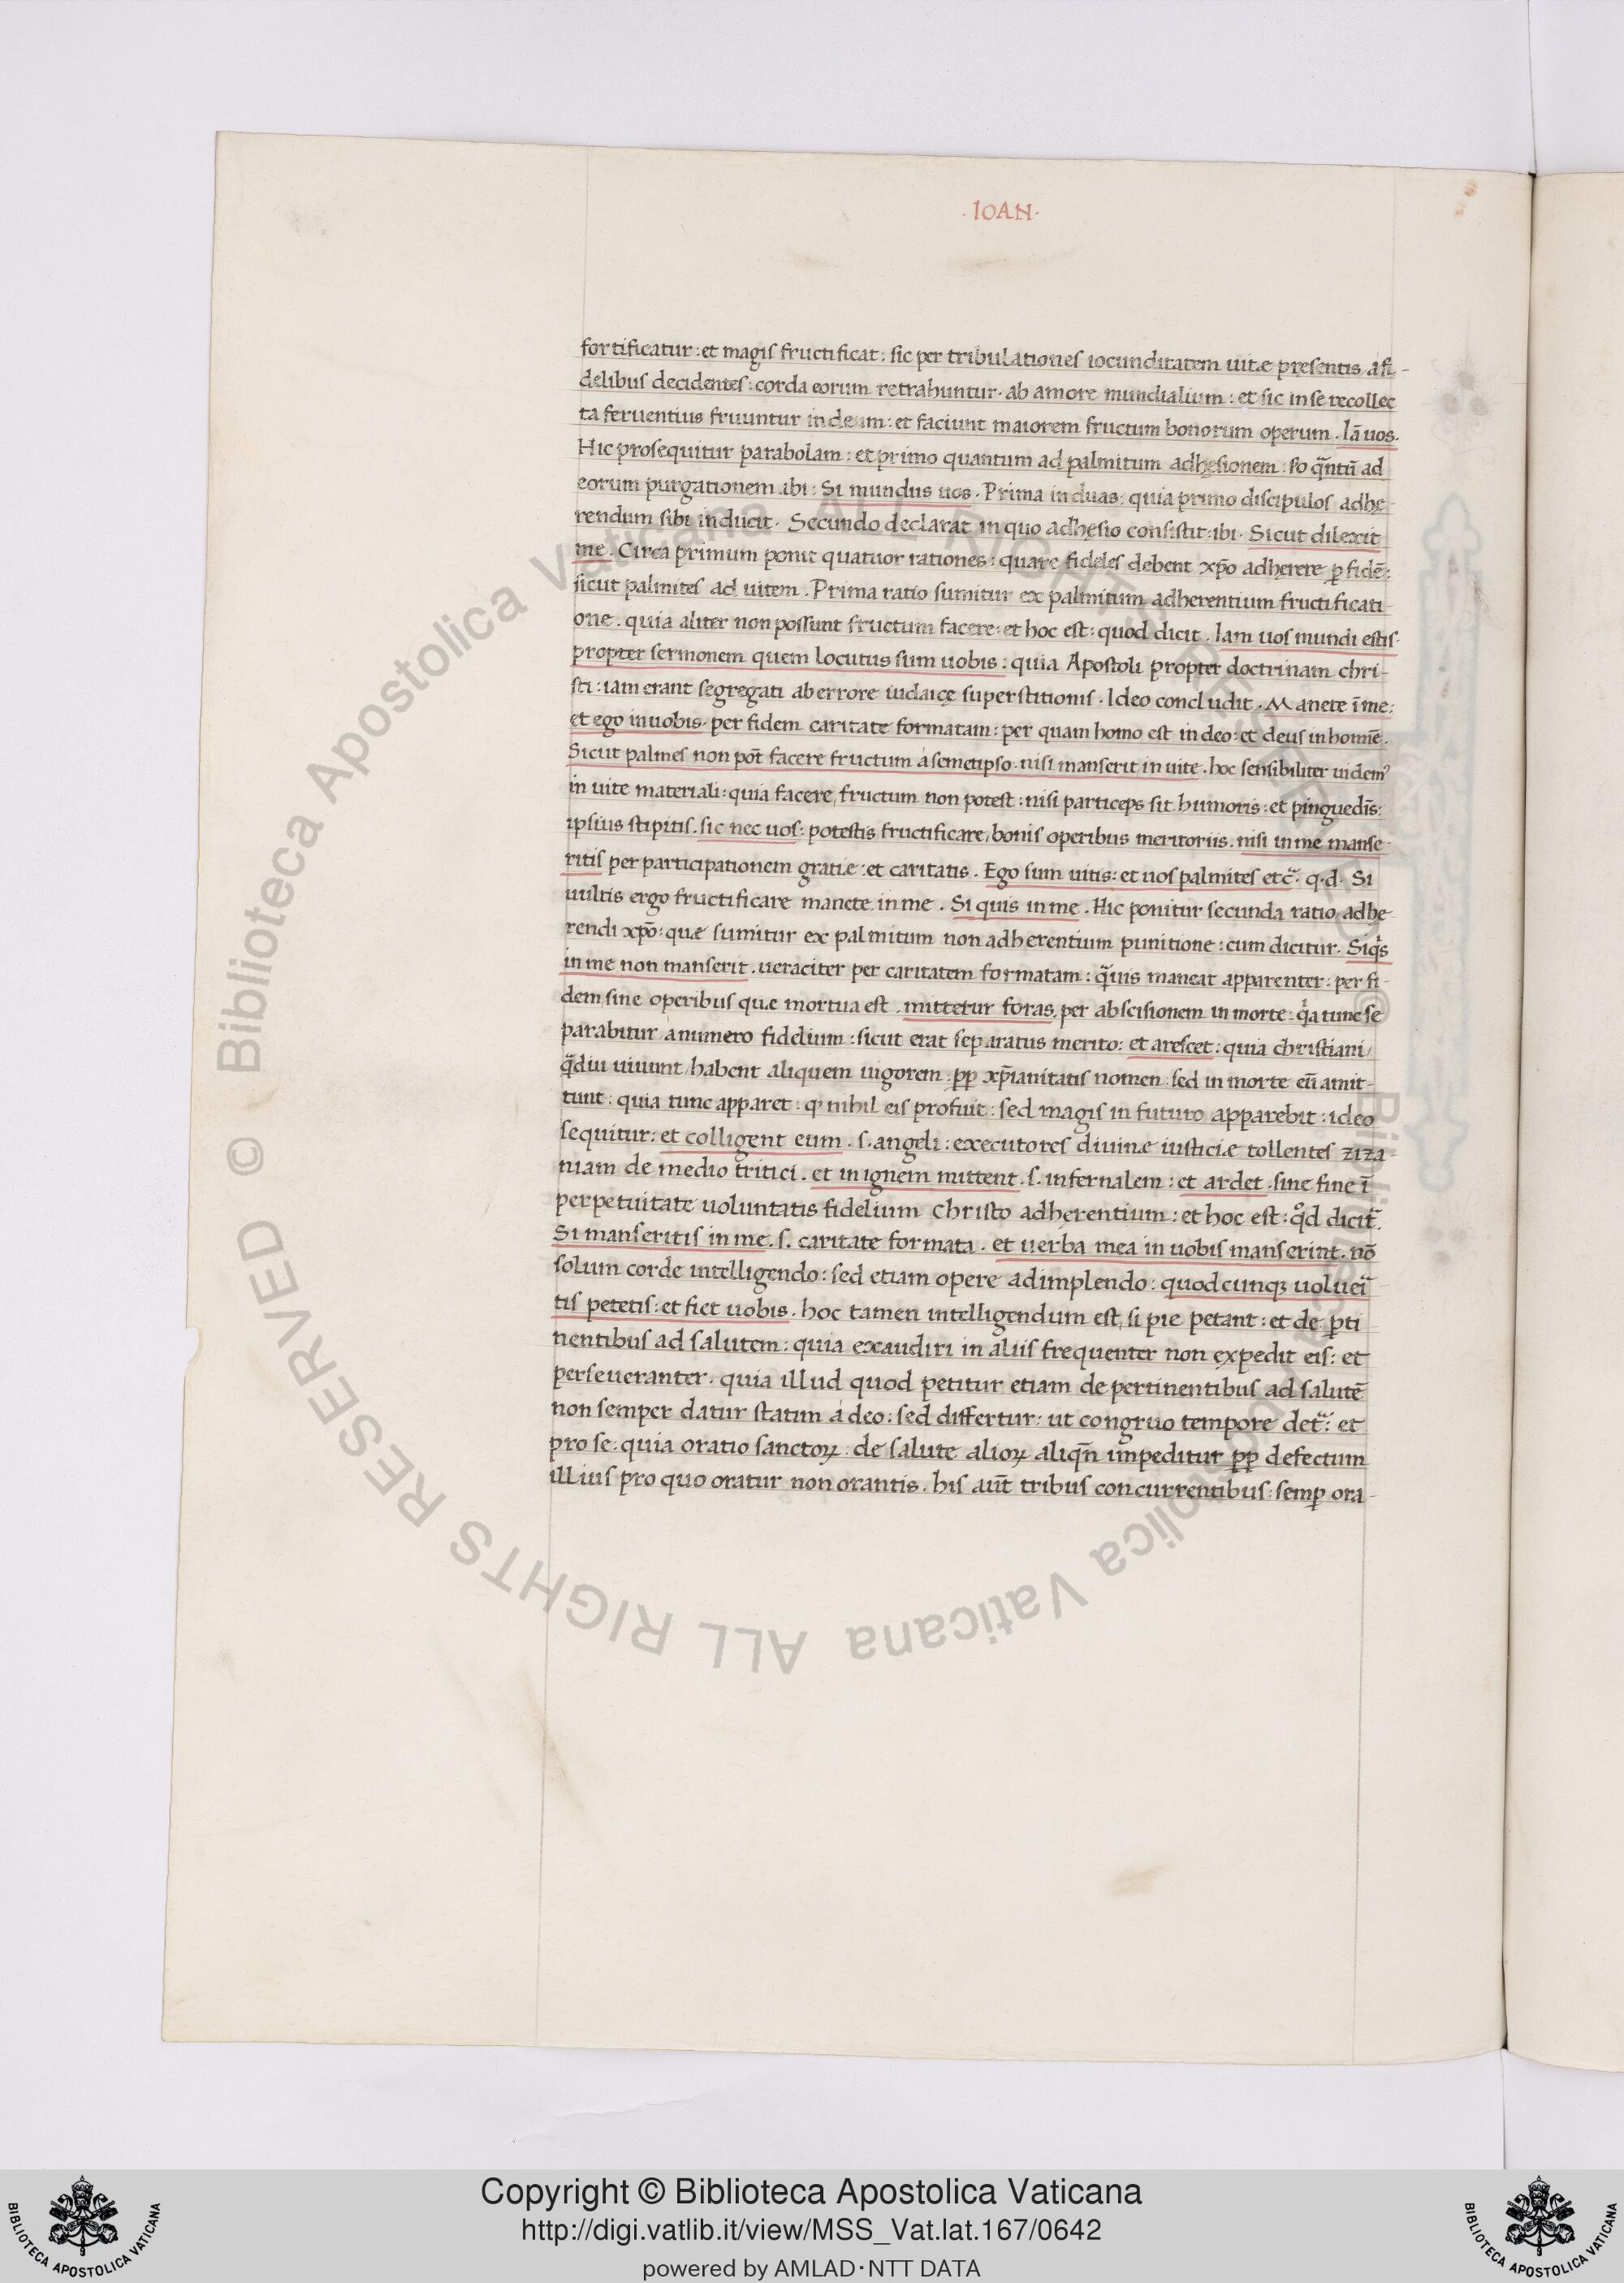 · IOAN ·
fortificatur : et magis fructificat : sic per tribulationes iocunditatem uitæ pręsentis a fi-
delibus decidentes : corda eorum retrahuntur · ab amore mundialium : et sic in se recollec
ta feruentius fruuntur in deum : et faciunt maiorem fructum bonorum operum . Iā uos .
Hic prosequitur parabolam : et primo quantum ad palmitum adhęsionem : so q̃ntū ad
eorum purgationem ibi : Si mundus uos . Prima in duas : quia primo discipulos adhe-
rendum sibi inducit . Secundo declarat in quo adhęsio consistit : ibi . Sicut dilexit
me . Circa primum ponit quatuor rationes : quare fideles debent xp̄o adherere ꝑ fidē :
sicut palmites ad uitem . Prima ratio sumitur ex palmitum adherentium fructificati-
one . quia aliter non possunt fructum facere : et hoc est : quod dicit . Iam uos mundi estis
propter sermonem quem locutus sum uobis : quia Apostoli propter doctrinam chri-
sti : iam erant segregati ab errore iudaicę superstitionis . Ideo concludit . Manete ī me :
et ego in uobis . per fidem caritate formatam : per quam homo est in deo : et deus in homīe .
Sicut palmes non pōt facere fructum á semetipso : nisi manserit in uite . hoc sensibiliter uidem⁹
in uite materiali : quia facere fructum non potest : nisi particeps sit humoris : et pinguedīs :
ipsius stipitis . sic nec uos : potestis fructificare , bonis operibus meritoriis . nisi in me manse-
ritis per participationem gratiæ : et caritatis . Ego sum uitis : et uos palmites etc̃ . q . d . Si
uultis ergo fructificare manete in me . Si quis in me . Hic ponitur secunda ratio adhe-
rendi xp̄o : quæ sumitur ex palmitum non adherentium punitione : cum dicitur . Siqͥs
in me non manserit . ueraciter per caritatem formatam : q̃uis maneat apparenter : per fi-
dem sine operibus quæ mortua est . mittetur foras . per abscisionem in morte : qͥa tunc se
parabitur a numero fidelium : sicut erat separatus merito : et arescet : quia christiani /
q̃diu uiuunt / habent aliquem uigorem : ꝓp xp̄ianitatis nomen : sed in morte eū amit-
tunt : quia tunc apparet : ꝙ nihil eis profuit : sed magis in futuro apparebit : ideo
sequitur : et colligent eum . s . angeli : executores diuinæ iusticiæ tollentes ziza-
niam de medio tritici . et in ignem mittent . s . infernalem : et ardet . sine fine ī
perpetuitate uoluntatis fidelium Christo adherentium : et hoc est : qͦd dicit̃ .
Si manseritis in me . s . caritate formata . et uerba mea in uobis manserint . nō
solum corde intelligendo : sed etiam opere adimplendo : quodcunqꝫ uoluei᷑
tis petetis : et fiet uobis . hoc tamen intelligendum est , si pie petant : et de ꝑti
nentibus ad salutem : quia exaudiri in aliis frequenter non expedit eis : et
perseueranter . quia illud quod petitur etiam de pertinentibus ad salutē
non semper datur statim á deo : sed differtur : ut congruo tempore det̃ : et
pro se : quia oratio sanctoꝝ : de salute alioꝝ aliqn̄ impeditur ꝓp defectum
illius pro quo oratur non orantis . his aūt tribus concurrentibus : semꝑ ora-
Copyright © Biblioteca Apostolica Vaticana
http://digi.vatlib.it/view/MSS_Vat.lat.167/0642
powered by AMLAD·NTT DATA
BIBLIOTECA APOSTOLICA VATICANA
BIBLIOTECA APOSTOLICA VATICANA
© Biblioteca Apostolica Vaticana ALL RIGHTS RESERVED
© Biblioteca Apostolica Vaticana ALL RIGHTS RESERVED